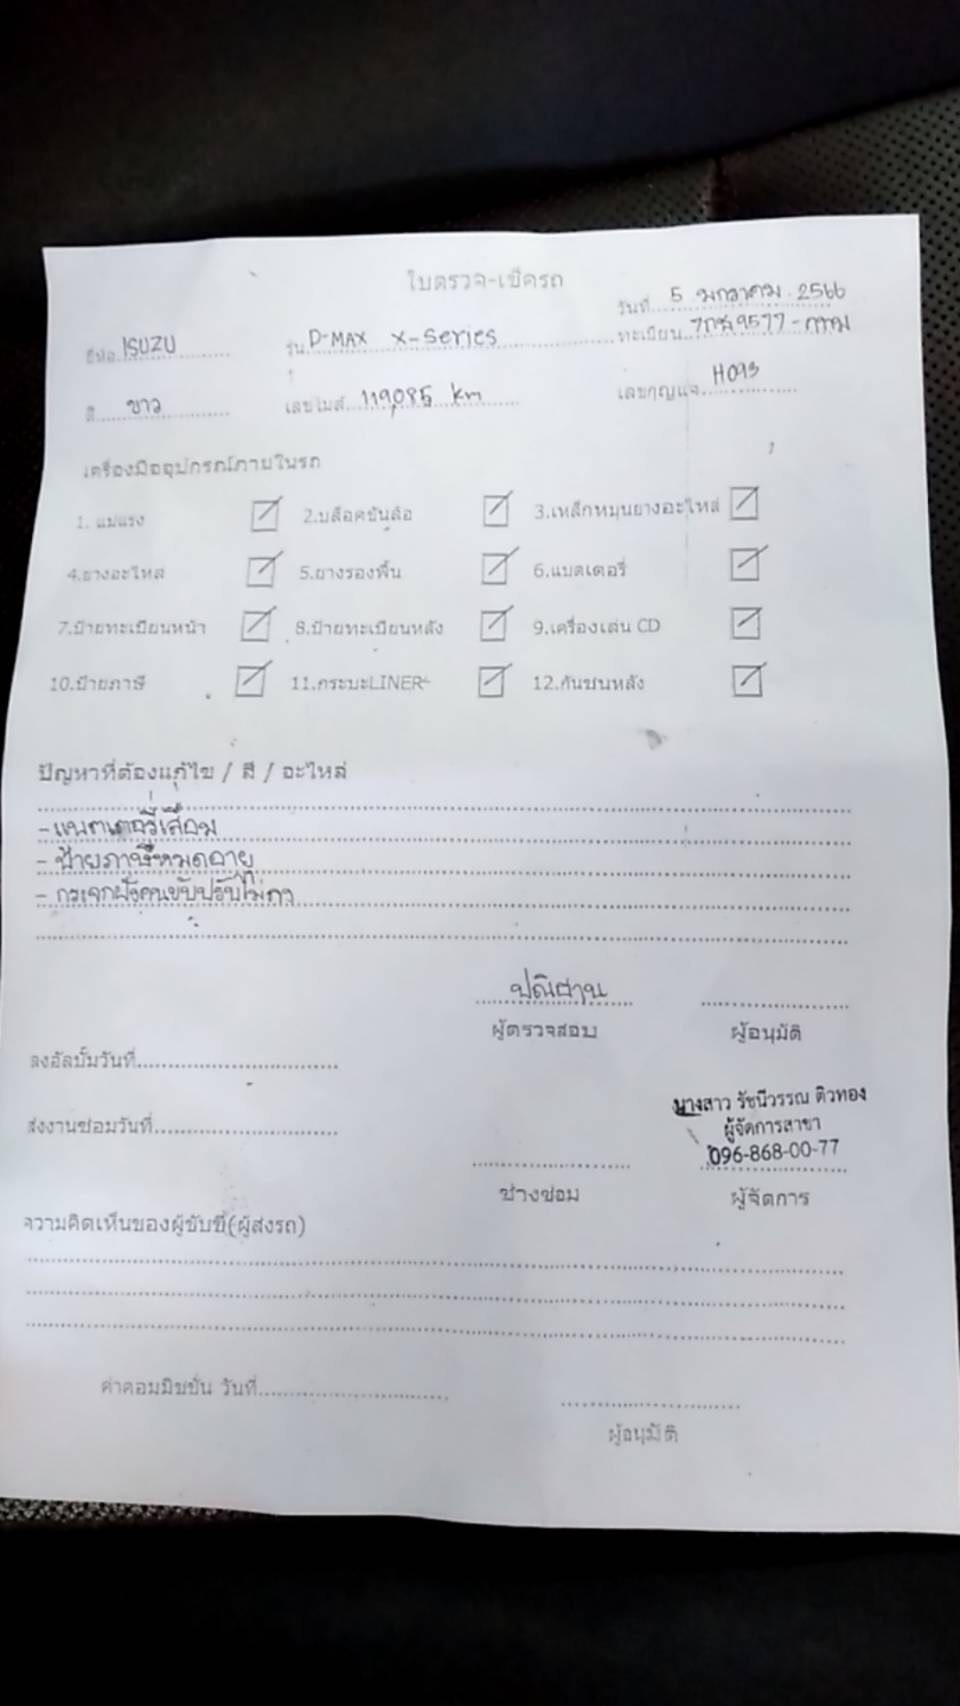 ใบตรวจ-เช็ครถ
วันที่ 5 มกราคม 2566
ยี่ห้อ ISUZU รุ่น D-MAX X-Series ทะเบียน 9577-กทม
สี ขาว เลขไมล์ 119,085 km เลขกุญแจ H093
เครื่องมืออุปกรณ์ภายในรถ
1. แม่แรง 2.บล็อคขันล้อ 3.เหล็กหมุนยางอะไหล่
4.ยางอะไหล่ 5.ยางรองพื้น 6.แบตเตอรี่
7.ป้ายทะเบียนหน้า 8.ป้ายทะเบียนหลัง 9.เครื่องเล่น CD
10.ป้ายภาษี 11.กระบะLINER 12.กันชนหลัง
ปัญหาที่ต้องแก้ไข / สี / อะไหล่
- แบตเตอรี่เสื่อม
- ป้ายภาษีหมดอายุ
- กระจกฝั่งคนขับปรับไม่ได้
ปณิธาน
ผู้ตรวจสอบ ผู้อนุมัติ
ลงอัลบั้มวันที่
นางสาว รัชนีวรรณ ติวทอง
ผู้จัดการสาขา
ส่งงานซ่อมวันที่
096-868-00-77
ช่างซ่อม ผู้จัดการ
ความคิดเห็นของผู้ขับขี่(ผู้ส่งรถ)
ค่าคอมมิชชั่น วันที่
ผู้อนุมัติ